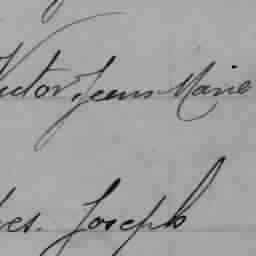 Victor, Jean Marie
es. Joseph